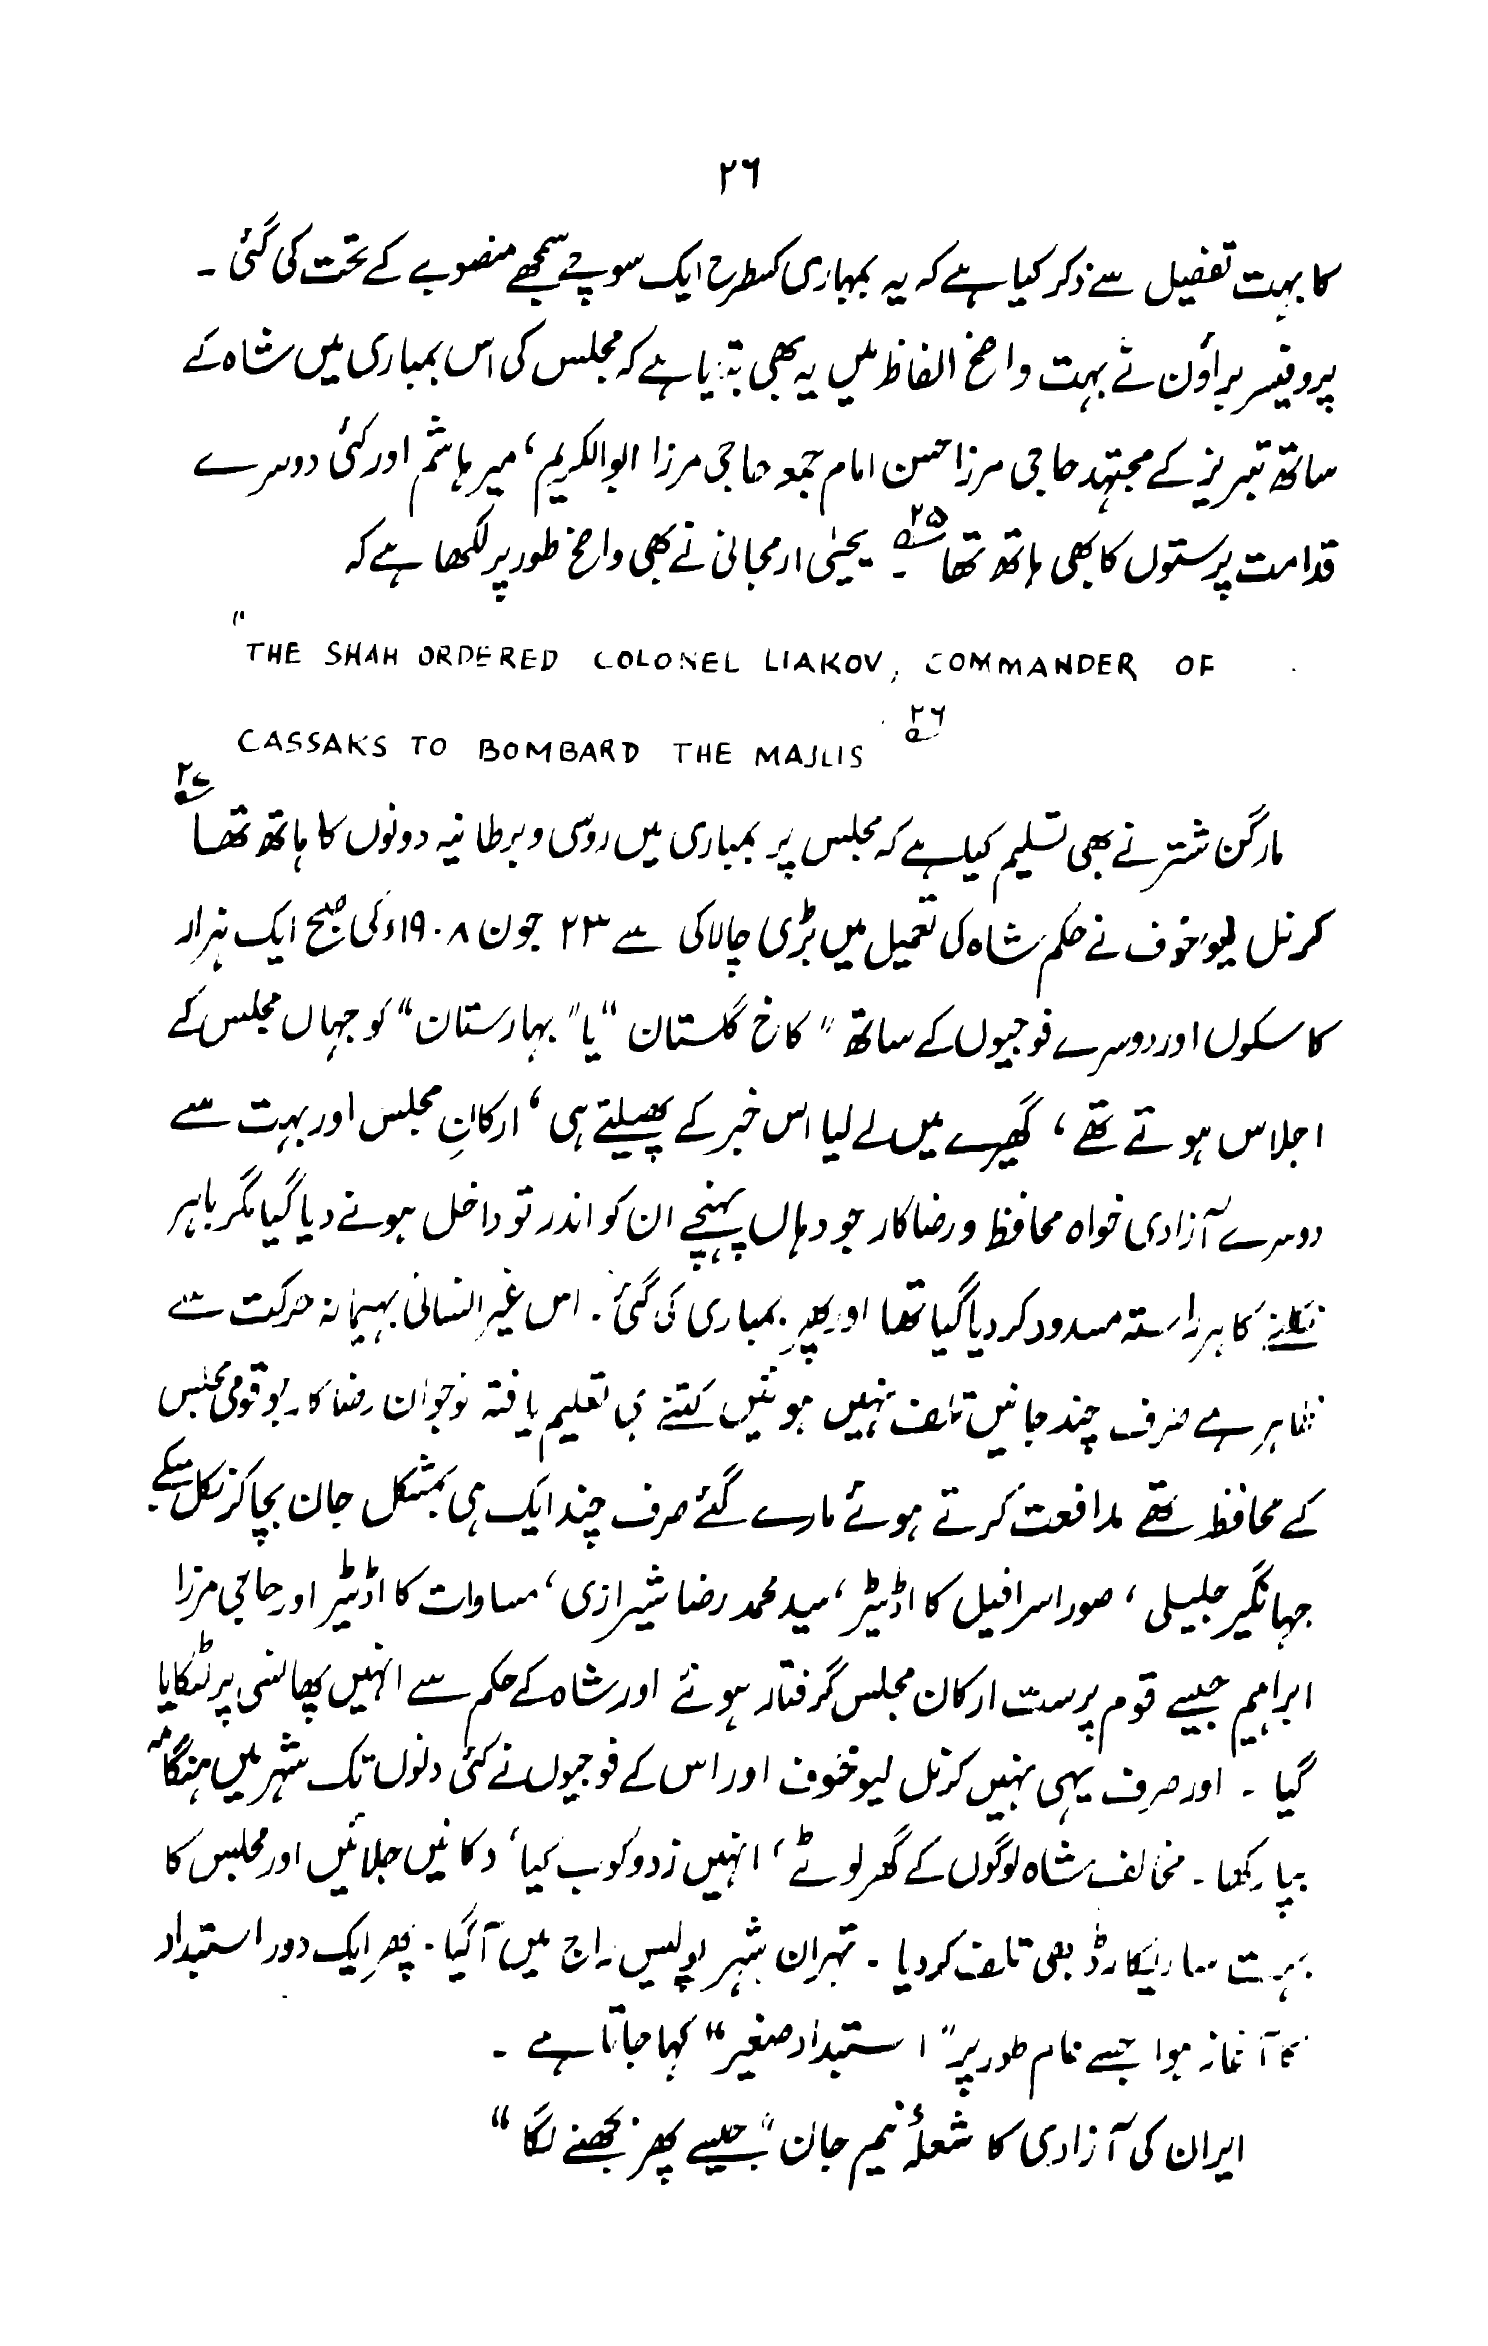 ۲۶
کا بہت تفصیل سے ذکر کیا ہے کہ یہ بمباری کسطرح ایک سوچے سمجھے منصوبے کے تحت کی گئی ۔
پروفیسر براؤن نے بہت واضح الفاظ میں یہ بھی بتایا ہے کہ مجلس کی اس بمباری میں شاہ کے
ساتھ تبریز کے مجتہد حاجی مرزا حسن امام جمعہ حاجی مرزا ابوالکریم، میر ہاشم اور کئی دوسرے
قدامت پرستوں کا بھی ہاتھ تھا ۲۵؎ یحییٰ ارمجانی نے بھی واضح طور پر لکھا ہے کہ
"THE SHAH ORDERED COLONEL LIAKOV, COMMANDER OF
CASSAKS TO BOMBARD THE MAJLIS ۲۶؎
مارگن شستر نے بھی تسلیم کیا ہے کہ مجلس پر بمباری میں روسی و برطانیہ دونوں کا ہاتھ تھا ۲۷؎
کرنل لیوخوف نے حکم شاہ کی تعمیل میں بڑی چالاکی سے ۲۳ جون ۱۹۰۸ء کی صبح ایک ہزار
کاسکوں اور دوسرے فوجیوں کے ساتھ "کاخ گلستان" یا "بہارستان" کو جہاں مجلس کے
اجلاس ہوتے تھے، گھیرے میں لے لیا اس خبر کے پھیلتے ہی، ارکانِ مجلس اور بہت سے
دوسرے آزادی خواہ محافظ و رضاکار جو وہاں پہنچے ان کو اندر تو داخل ہونے دیا گیا مگر باہر
نکلنے کا ہر راستہ مسدود کر دیا گیا تھا اور پھر بمباری کی گئی ۔ اس غیر انسانی بہیمانہ حرکت سے
ظاہر ہے صرف چند جانیں تلف نہیں ہوئیں کتنے ہی تعلیم یافتہ نوجوان رضاکار جو قومی مجلس
کے محافظ تھے مدافعت کرتے ہوئے مارے گئے صرف چند ایک ہی بمشکل جان بچا کر نکل سکے
جہانگیر جلیلی، صور اسرافیل کا اڈیٹر، سید محمد رضا شیرازی، مساوات کا اڈیٹر اور حاجی مرزا
ابراہیم جیسے قوم پرست ارکان مجلس گرفتار ہوئے اور شاہ کے حکم سے انہیں پھانسی پر لٹکایا
گیا ۔ اور صرف یہی نہیں کرنل لیوخوف اور اس کے فوجیوں نے کئی دنوں تک شہر میں ہنگامہ
بپا رکھا ۔ مخالف شاہ لوگوں کے گھر لوٹے، انہیں زدوکوب کیا، دکانیں جلائیں اور مجلس کا
بہت سا ریکارڈ بھی تلف کردیا ۔ تہران شہر پولیس راج میں آ گیا ۔ پھر ایک دور استبداد
کا آغاز ہوا جسے عام طور پر "استبداد صغیر" کہا جاتا ہے ۔
ایران کی آزادی کا شعلۂ نیم جان "جیسے پھر بجھنے لگا"